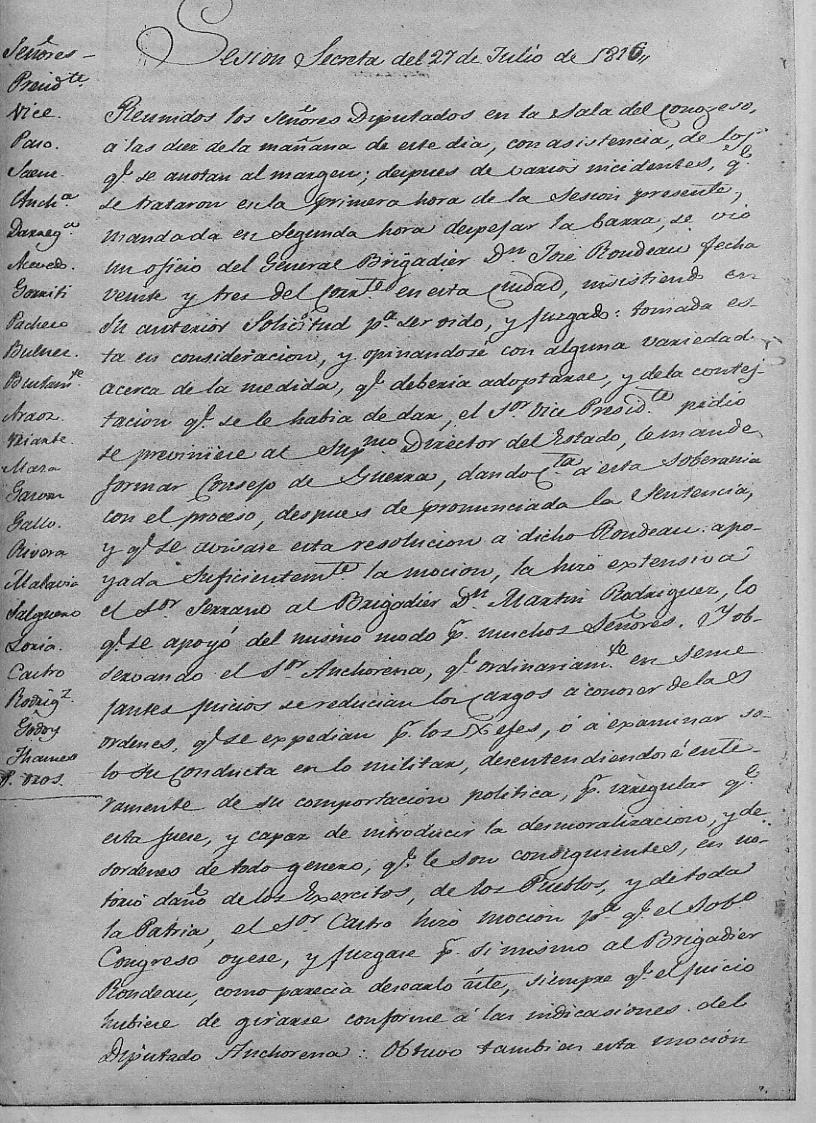 Sesion Secreta del 27 de Julio de 1816,,
Señores
Presid.te
Vice.
Paso.
Saenz.
Anch.a
Darreg.a
Acevedo.
Gorriti
Pacheco
Bulnes.
Bustam.te
Araoz.
Uriarte.
Maza
Gascon
Gallo.
Rivera
Malavia
Salguero
Loria.
Castro
Rodrig.z
Godoy
Thames
P. Oros.
Reunidos los Señores Diputados en la Sala del Congreso,
a las diez de la mañana de este dia, con asistencia, de los
q.e se anotan al margen; despues de varios incidentes, q.e
se trataron en la primera hora de la Sesion presente,
mandada en segunda hora despejar la barra, se vio
un oficio del General Brigadier D.n José Rondeau fecha
veinte y tres del Corr.te en esta Ciudad, insistiendo en
su anterior Solicitud p.a ser oido, y juzgado: tomada es-
ta en consideracion, y opinandose con alguna variedad
acerca de la medida, q.e deberia adoptarse, y de la contes-
tacion q.e se le habia de dar, el S.or Vice Presid.te pidio
se previniese al Sup.mo Director del Estado, le mande
formar Consejo de Guerra, dando c.ta a esta Soberania
con el proceso, despues de pronunciada la Sentencia,
y q.e se avisase esta resolucion a dicho Rondeau: apo-
yada suficientem.te la mocion, la hizo extensiva
el S.or Serrano al Brigadier D.n Martin Rodriguez, lo
q.e se apoyó del mismo modo p.r muchos Señores. Y ob-
servando el S.or Anchorena, q.e ordinariam.te en seme
jantes juicios se reducian los cargos a conocer de las
ordenes, q.e se expedian p.r los Xefes, ó a examinar so-
lo su conducta en lo militar, desentendiendose ente-
ramente de su comportacion politica, p.r irregular q.e
esta fuese, y capaz de introducir la desmoralizacion, y de-
sordenes de todo genero, q.e le son consiguientes, en no-
torio daño de los Exercitos, de los Pueblos, y de toda
la Patria, el S.or Castro hizo mocion p.a q.e el Sob.o
Congreso oyese, y juzgase p.r si mismo al Brigadier
Rondeau, como parecia desearlo este, siempre q.e el juicio
hubiese de girarse conforme á las indicasiones del
Diputado Anchorena: Obtuvo tambien esta mocion